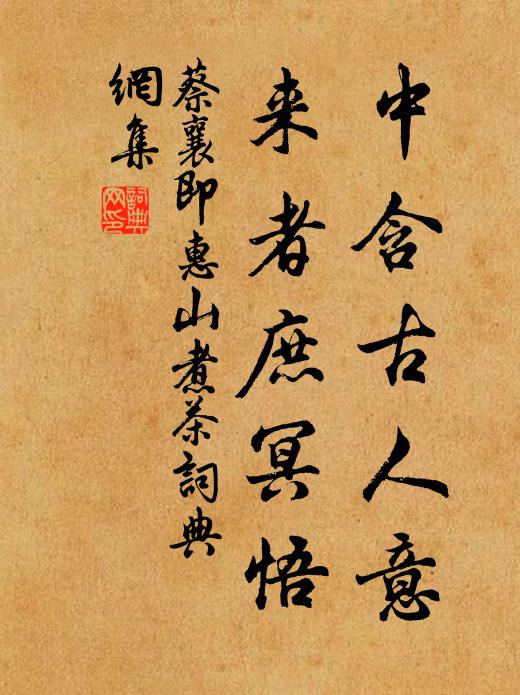 中含古人意
来者庶冥悟
蔡襄即惠山煮茶詞典
網集
詞典
网印